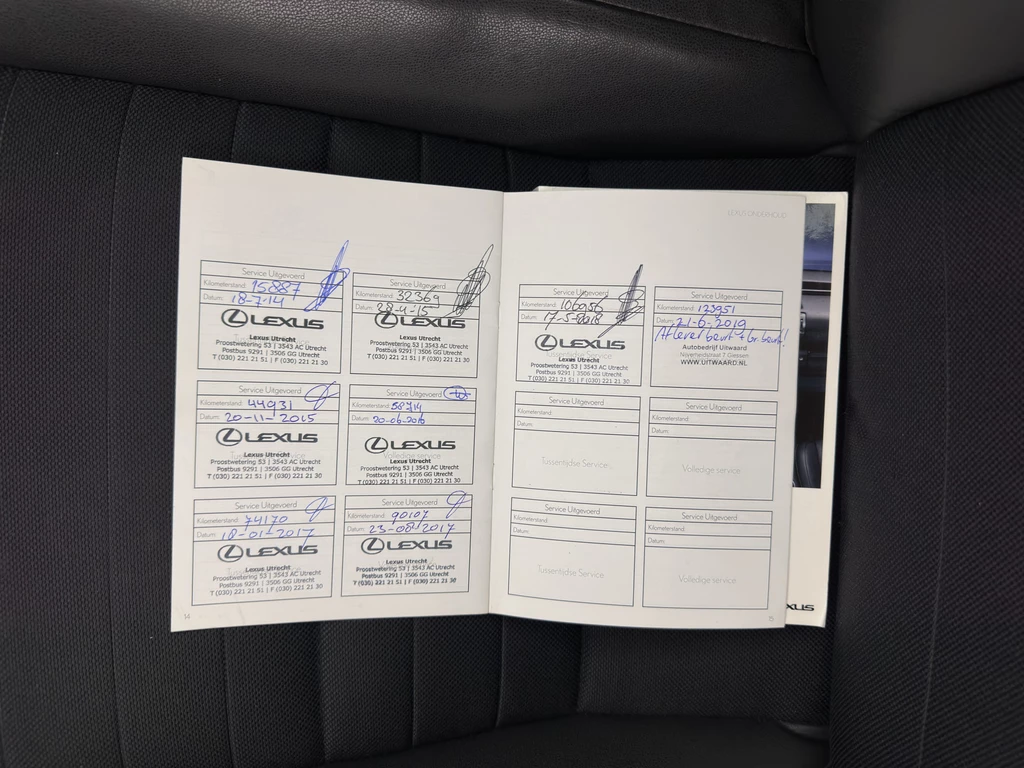 Service Uitgevoerd
Kilometerstand: 15887
Datum: 18-7-14
LEXUS
Lexus Utrecht
Proostwetering 53 | 3543 AC Utrecht
Postbus 9291 | 3506 GG Utrecht
T (030) 221 21 51 | F (030) 221 21 30
Service Uitgevoerd
Kilometerstand: 32369
Datum: 28-4-'15
LEXUS
Lexus Utrecht
Proostwetering 53 | 3543 AC Utrecht
Postbus 9291 | 3506 GG Utrecht
T (030) 221 21 51 | F (030) 221 21 30
Service Uitgevoerd
Kilometerstand: 44931
Datum: 20-11-2015
LEXUS
Lexus Utrecht
Proostwetering 53 | 3543 AC Utrecht
Postbus 9291 | 3506 GG Utrecht
T (030) 221 21 51 | F (030) 221 21 30
Service Uitgevoerd
Kilometerstand: 58714
Datum: 20-06-2016
LEXUS
Volledige service
Lexus Utrecht
Proostwetering 53 | 3543 AC Utrecht
Postbus 9291 | 3506 GG Utrecht
T (030) 221 21 51 | F (030) 221 21 30
Service Uitgevoerd
Kilometerstand: 74170
Datum: 18-01-2017
LEXUS
Lexus Utrecht
Proostwetering 53 | 3543 AC Utrecht
Postbus 9291 | 3506 GG Utrecht
T (030) 221 21 51 | F (030) 221 21 30
Service Uitgevoerd
Kilometerstand: 90107
Datum: 23-08-2017
LEXUS
Lexus Utrecht
Proostwetering 53 | 3543 AC Utrecht
Postbus 9291 | 3506 GG Utrecht
T (030) 221 21 51 | F (030) 221 21 30
14
LEXUS ONDERHOUD
Service Uitgevoerd
Kilometerstand: 106956
Datum: 17-5-2018
LEXUS
Tussentijdse Service
Lexus Utrecht
Proostwetering 53 | 3543 AC Utrecht
Postbus 9291 | 3506 GG Utrecht
T (030) 221 21 51 | F (030) 221 21 30
Service Uitgevoerd
Kilometerstand: 123951
Datum: 21-6-2019
Afleverbeurt + gr. beurt!
Autobedrijf Uitwaard
Nijverheidstraat 7 Giessen
WWW.UITWAARD.NL
Service Uitgevoerd
Kilometerstand:
Datum:
Tussentijdse Service
Service Uitgevoerd
Kilometerstand:
Datum:
Volledige service
Service Uitgevoerd
Kilometerstand:
Datum:
Tussentijdse Service
Service Uitgevoerd
Kilometerstand:
Datum:
Volledige service
15
XUS